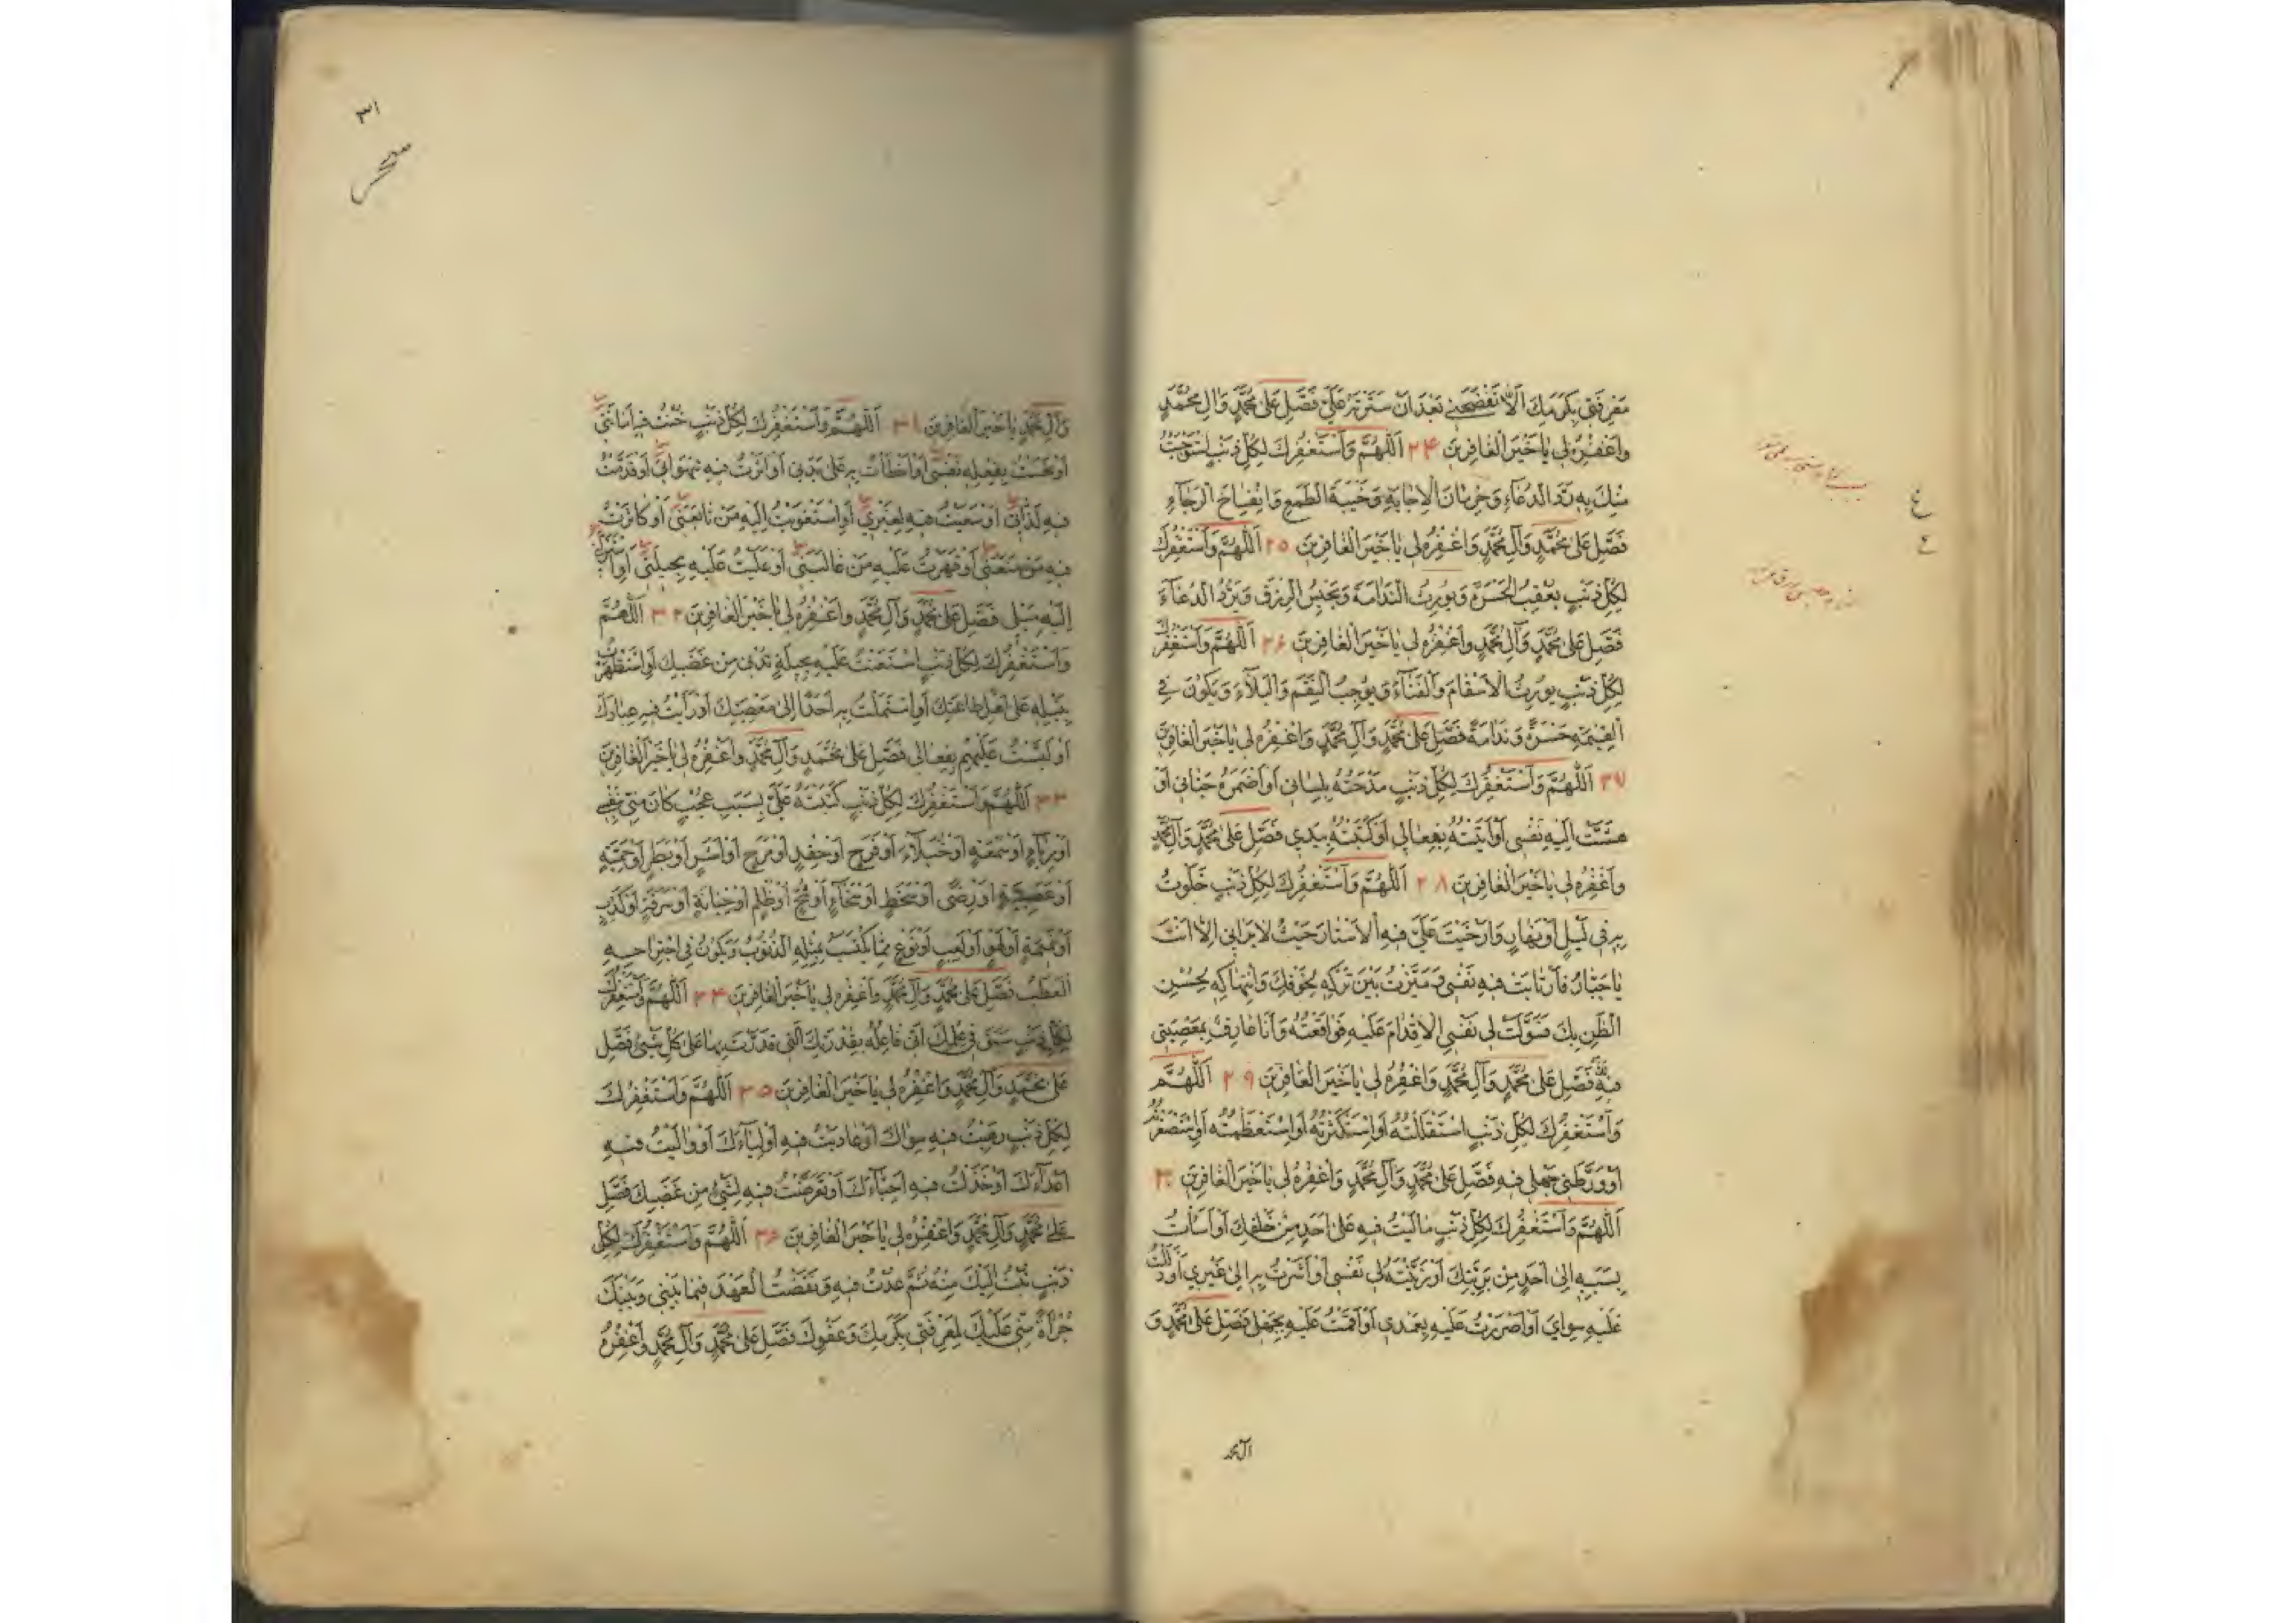 مَعْرِفَتِي بِكَرَمِكَ أَلَّا تَفْضَحَنِي بَعْدَ أَنْ سَتَرْتَهُ عَلَيَّ فَصَلِّ عَلَىٰ مُحَمَّدٍ وَآلِ مُحَمَّدٍ
وَاغْفِرْهُ لِي يَا خَيْرَ الْغَافِرِينَ ۲۴ اَللّٰهُمَّ وَأَسْتَغْفِرُكَ لِكُلِّ ذَنْبٍ
مِنْكَ بِهِ رَدَّ الدُّعَاءِ وَحِرْمَانَ الْإِجَابَةِ وَخَيْبَةَ الطَّمَعِ وَانْفِسَاخَ الرَّجَاءِ
فَصَلِّ عَلَىٰ مُحَمَّدٍ وَآلِ مُحَمَّدٍ وَاغْفِرْهُ لِي يَا خَيْرَ الْغَافِرِينَ ۲۵ اَللّٰهُمَّ وَأَسْتَغْفِرُكَ
لِكُلِّ ذَنْبٍ يُعْقِبُ الْحَسْرَةَ وَيُورِثُ النَّدَامَةَ وَيَحْبِسُ الرِّزْقَ وَيَرُدُّ الدُّعَاءَ
فَصَلِّ عَلَىٰ مُحَمَّدٍ وَآلِ مُحَمَّدٍ وَاغْفِرْهُ لِي يَا خَيْرَ الْغَافِرِينَ ۲۶ اَللّٰهُمَّ وَأَسْتَغْفِرُكَ
لِكُلِّ ذَنْبٍ يُورِثُ الْأَسْقَامَ وَالْفَنَاءَ وَيُوجِبُ النِّقَمَ وَالْبَلَاءَ وَيَكُونُ فِي
الْقِيٰمَةِ حَسْرَةً وَنَدَامَةً فَصَلِّ عَلَىٰ مُحَمَّدٍ وَآلِ مُحَمَّدٍ وَاغْفِرْهُ لِي يَا خَيْرَ الْغَافِرِينَ
۲۷ اَللّٰهُمَّ وَأَسْتَغْفِرُكَ لِكُلِّ ذَنْبٍ مَدَحْتُهُ بِلِسَانِي أَوْ أَضْمَرَهُ جَنَانِي أَوْ
هَشَّتْ إِلَيْهِ نَفْسِي أَوْ أَتَيْتُهُ بِفِعَالِي أَوْ كَتَبْتُهُ بِيَدِي فَصَلِّ عَلَىٰ مُحَمَّدٍ وَآلِ مُحَمَّدٍ
وَاغْفِرْهُ لِي يَا خَيْرَ الْغَافِرِينَ ۲۸ اَللّٰهُمَّ وَأَسْتَغْفِرُكَ لِكُلِّ ذَنْبٍ خَلَوْتُ
بِهِ فِي لَيْلٍ أَوْ نَهَارٍ وَأَرْخَيْتَ عَلَيَّ فِيهِ الْأَسْتَارَ حَيْثُ لَا يَرَانِي إِلَّا أَنْتَ
يَا جَبَّارُ فَارْتَابَتْ فِيهِ نَفْسِي وَمَيَّزْتُ بَيْنَ تَرْكِهِ بِخَوْفِكَ وَانْتِهَاكِهِ بِحُسْنِ
الظَّنِّ بِكَ فَسَوَّلَتْ لِي نَفْسِي الْإِقْدَامَ عَلَيْهِ فَوَاقَعْتُهُ وَأَنَا عَارِفٌ بِمَعْصِيَتِي
فِيهِ فَصَلِّ عَلَىٰ مُحَمَّدٍ وَآلِ مُحَمَّدٍ وَاغْفِرْهُ لِي يَا خَيْرَ الْغَافِرِينَ ۲۹ اَللّٰهُمَّ
وَأَسْتَغْفِرُكَ لِكُلِّ ذَنْبٍ اسْتَقْلَلْتُهُ أَوِ اسْتَكْثَرْتُهُ أَوِ اسْتَعْظَمْتُهُ أَوِ اسْتَصْغَرْتُهُ
أَوْ وَرَّطَنِي جَهْلِي فِيهِ فَصَلِّ عَلَىٰ مُحَمَّدٍ وَآلِ مُحَمَّدٍ وَاغْفِرْهُ لِي يَا خَيْرَ الْغَافِرِينَ ۳۰
اَللّٰهُمَّ وَأَسْتَغْفِرُكَ لِكُلِّ ذَنْبٍ مَالَيْتُ فِيهِ عَلَىٰ أَحَدٍ مِنْ خَلْقِكَ أَوْ أَسَأْتُ
بِسَبَبِهِ إِلَىٰ أَحَدٍ مِنْ بَرِيَّتِكَ أَوْ زَيَّنَتْهُ لِي نَفْسِي أَوْ أَشَرْتُ بِهِ إِلَىٰ غَيْرِي أَوْ دَلَلْتُ
عَلَيْهِ سِوَايَ أَوْ أَصْرَرْتُ عَلَيْهِ بِعَمْدِي أَوْ أَقَمْتُ عَلَيْهِ بِجَهْلِي فَصَلِّ عَلَىٰ مُحَمَّدٍ وَ
آل محمد
۳۱
وَآلِ مُحَمَّدٍ يَا خَيْرَ الْغَافِرِينَ ۳۱ اَللّٰهُمَّ وَأَسْتَغْفِرُكَ لِكُلِّ ذَنْبٍ خُنْتُ فِيهِ أَمَانَتِي
أَوْ بَخَسْتُ بِفِعْلِهِ نَفْسِي أَوْ أَخْطَأْتُ بِهِ عَلَىٰ بَدَنِي أَوْ آثَرْتُ فِيهِ شَهَوَاتِي أَوْ قَدَّمْتُ
فِيهِ لَذَّاتِي أَوْ سَعَيْتُ فِيهِ لِغَيْرِي أَوِ اسْتَغْوَيْتُ إِلَيْهِ مَنْ تَابَعَنِي أَوْ كَاثَرْتُ
فِيهِ مَنْ مَنَعَنِي أَوْ قَهَرْتُ عَلَيْهِ مَنْ غَالَبَنِي أَوْ غَلَبْتُ عَلَيْهِ بِحِيلَتِي
إِلَيْهِ مَيْلِي فَصَلِّ عَلَىٰ مُحَمَّدٍ وَآلِ مُحَمَّدٍ وَاغْفِرْهُ لِي يَا خَيْرَ الْغَافِرِينَ ۳۲ اَللّٰهُمَّ
وَأَسْتَغْفِرُكَ لِكُلِّ ذَنْبٍ اسْتَعَنْتُ عَلَيْهِ بِحِيلَةٍ تُدْنِي مِنْ غَضَبِكَ أَوِ اسْتَظْهَرْتُ
بِنَيْلِهِ عَلَىٰ أَهْلِ طَاعَتِكَ أَوِ اسْتَمَلْتُ بِهِ أَحَدًا إِلَىٰ مَعْصِيَتِكَ أَوْ رَاءَيْتُ فِيهِ عِبَادَكَ
أَوْ لَبَّسْتُ عَلَيْهِمْ بِفِعَالِي فَصَلِّ عَلَىٰ مُحَمَّدٍ وَآلِ مُحَمَّدٍ وَاغْفِرْهُ لِي يَا خَيْرَ الْغَافِرِينَ
۳۳ اَللّٰهُمَّ وَأَسْتَغْفِرُكَ لِكُلِّ ذَنْبٍ كَتَبْتَهُ عَلَيَّ بِسَبَبِ عُجْبٍ كَانَ مِنِّي بِنَفْسِي
أَوْ رِيَاءٍ أَوْ سُمْعَةٍ أَوْ خُيَلَاءَ أَوْ فَرَحٍ أَوْ حِقْدٍ أَوْ مَرَحٍ أَوْ أَشَرٍ أَوْ بَطَرٍ أَوْ حَمِيَّةٍ
أَوْ عَصَبِيَّةٍ أَوْ رِضًى أَوْ سَخَطٍ أَوْ سَخَاءٍ أَوْ شُحٍّ أَوْ ظُلْمٍ أَوْ خِيَانَةٍ أَوْ سَرِقَةٍ أَوْ كَذِبٍ
أَوْ نَمِيمَةٍ أَوْ لَهْوٍ أَوْ لَعِبٍ أَوْ نَوْعٍ مِمَّا يُكْتَسَبُ بِمِثْلِهِ الذُّنُوبُ وَيَكُونُ فِي اجْتِرَاحِهِ
الْعَطَبُ فَصَلِّ عَلَىٰ مُحَمَّدٍ وَآلِ مُحَمَّدٍ وَاغْفِرْهُ لِي يَا خَيْرَ الْغَافِرِينَ ۳۴ اَللّٰهُمَّ وَأَسْتَغْفِرُكَ
لِكُلِّ ذَنْبٍ سَبَقَ فِي عِلْمِكَ أَنِّي فَاعِلُهُ بِقُدْرَتِكَ الَّتِي قَدَرْتَ بِهَا عَلَىٰ كُلِّ شَيْءٍ فَصَلِّ
عَلَىٰ مُحَمَّدٍ وَآلِ مُحَمَّدٍ وَاغْفِرْهُ لِي يَا خَيْرَ الْغَافِرِينَ ۳۵ اَللّٰهُمَّ وَأَسْتَغْفِرُكَ
لِكُلِّ ذَنْبٍ رَهِبْتُ فِيهِ سِوَاكَ أَوْ عَادَيْتُ فِيهِ أَوْلِيَاءَكَ أَوْ وَالَيْتُ فِيهِ
أَعْدَاءَكَ أَوْ خَذَلْتُ فِيهِ أَحِبَّاءَكَ أَوْ تَعَرَّضْتُ فِيهِ لِشَيْءٍ مِنْ غَضَبِكَ فَصَلِّ
عَلَىٰ مُحَمَّدٍ وَآلِ مُحَمَّدٍ وَاغْفِرْهُ لِي يَا خَيْرَ الْغَافِرِينَ ۳۶ اَللّٰهُمَّ وَأَسْتَغْفِرُكَ لِكُلِّ
ذَنْبٍ تُبْتُ إِلَيْكَ مِنْهُ ثُمَّ عُدْتُ فِيهِ وَنَقَضْتُ الْعَهْدَ فِيمَا بَيْنِي وَبَيْنَكَ
جُرْأَةً مِنِّي عَلَيْكَ لِمَعْرِفَتِي بِكَرَمِكَ وَعَفْوِكَ فَصَلِّ عَلَىٰ مُحَمَّدٍ وَآلِ مُحَمَّدٍ وَاغْفِرْهُ